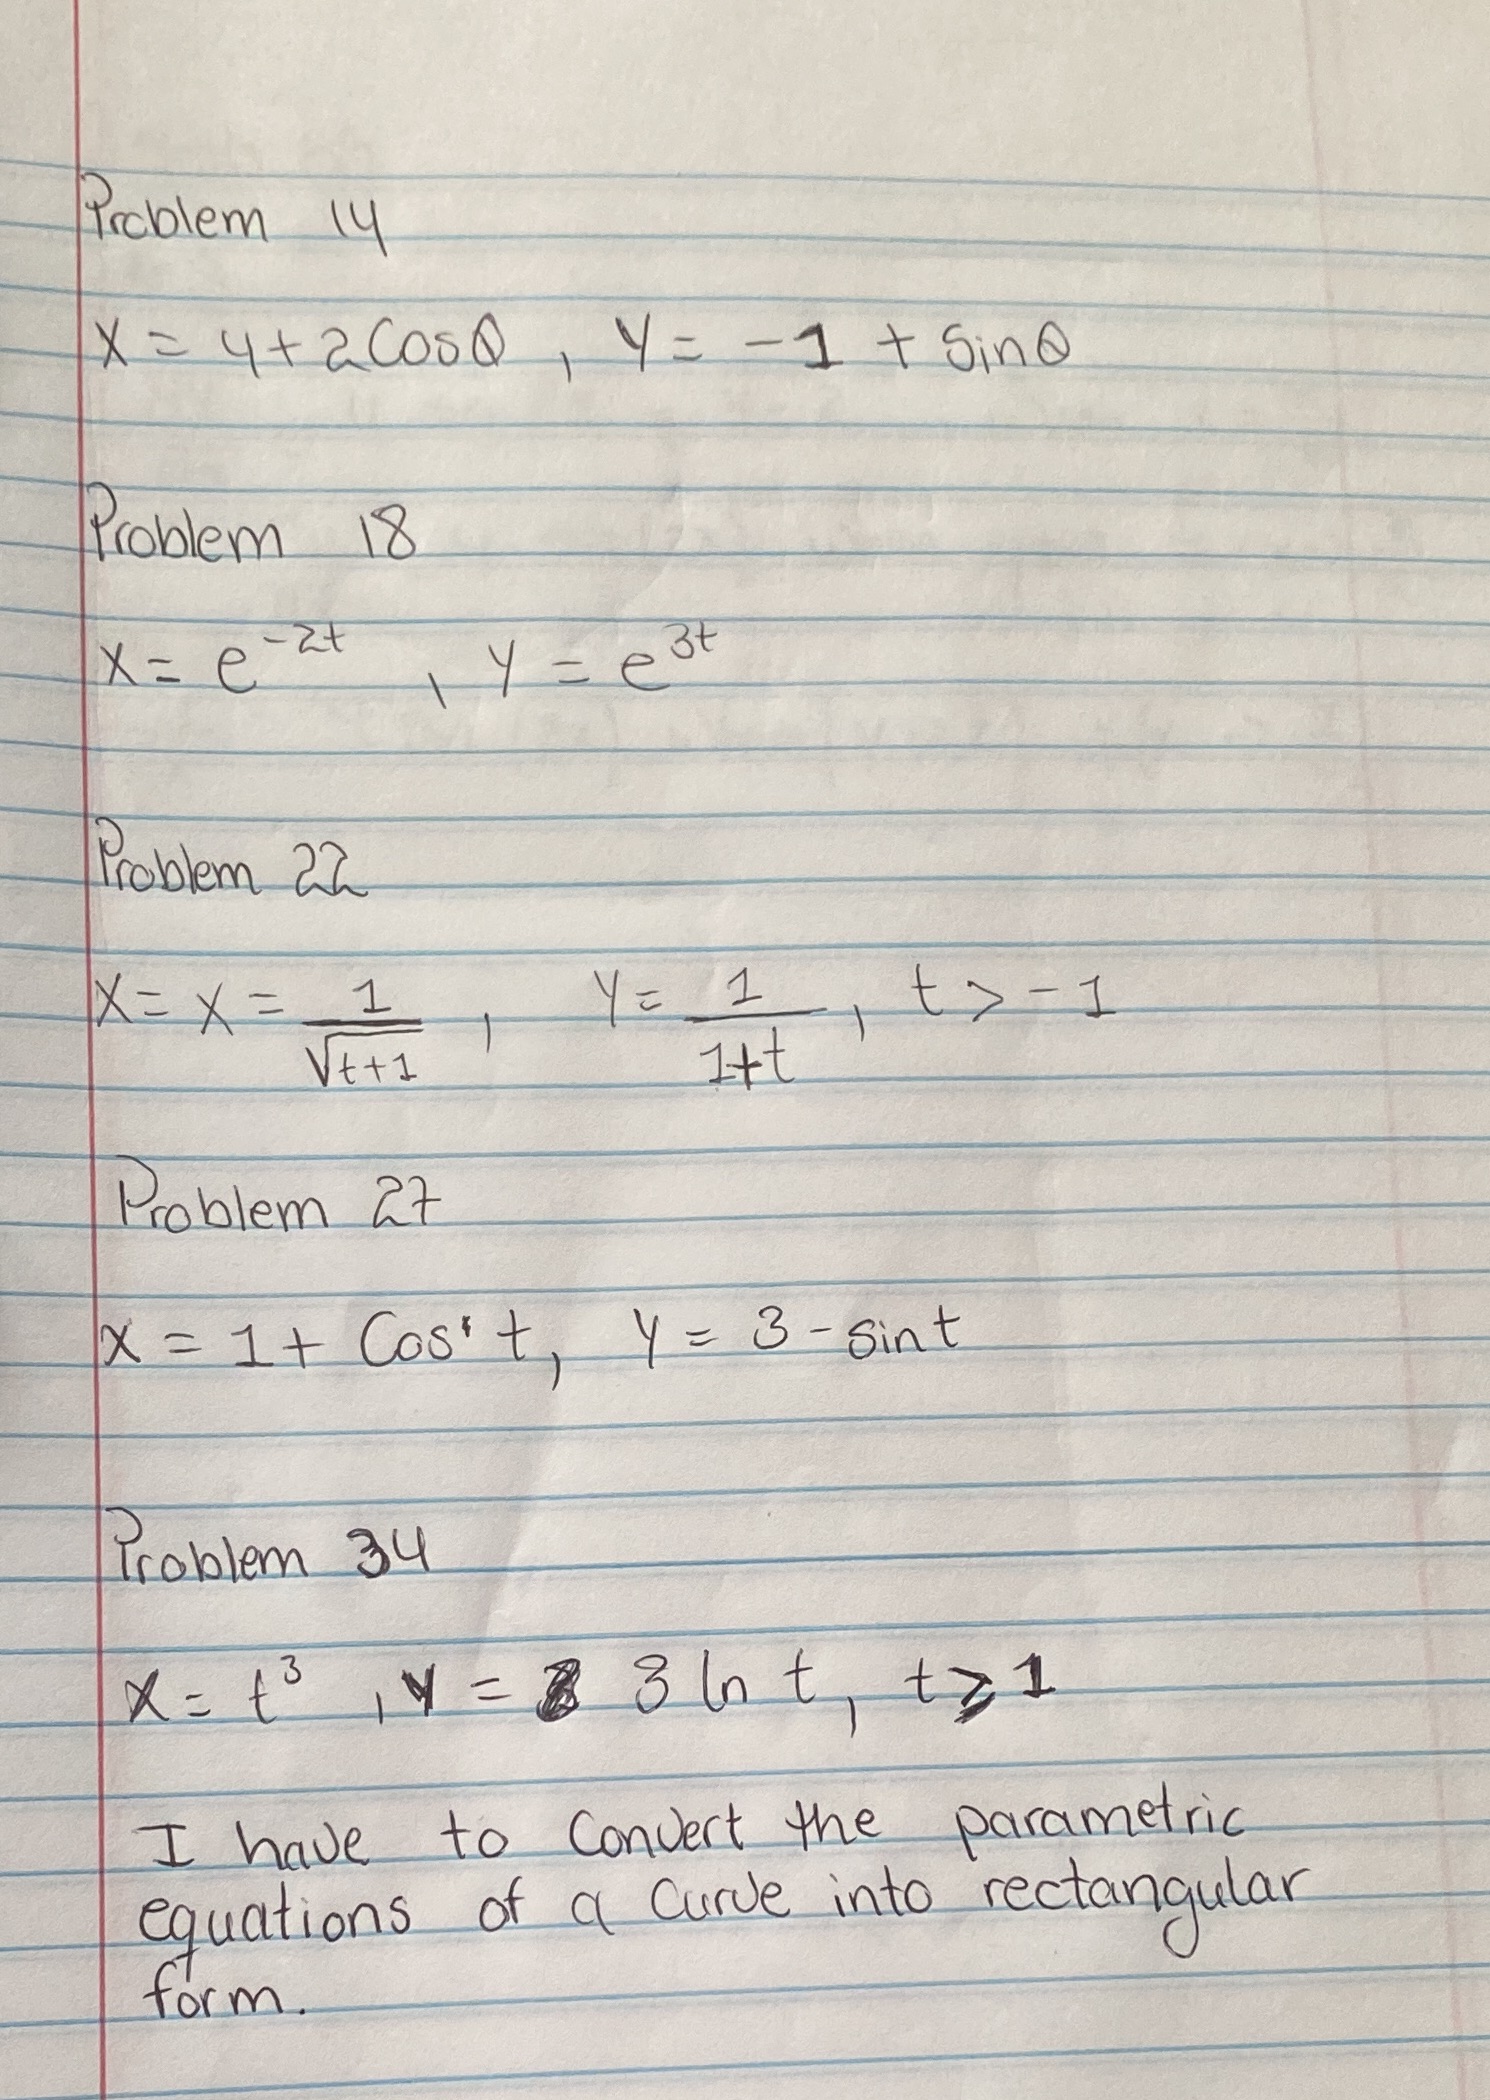 Problem 14
x = 4 + 2 Cos θ , y = -1 + sin θ
Problem 18
x = e^-2t , y = e^3t
Problem 22
x = x = 1/√t+1 , y = 1/1+t , t > -1
Problem 27
x = 1 + Cos t, y = 3 - sin t
Problem 34
x = t^3 , y = 3 ln t, t ≥ 1
I have to Convert the parametric
equations of a Curve into rectangular
form.